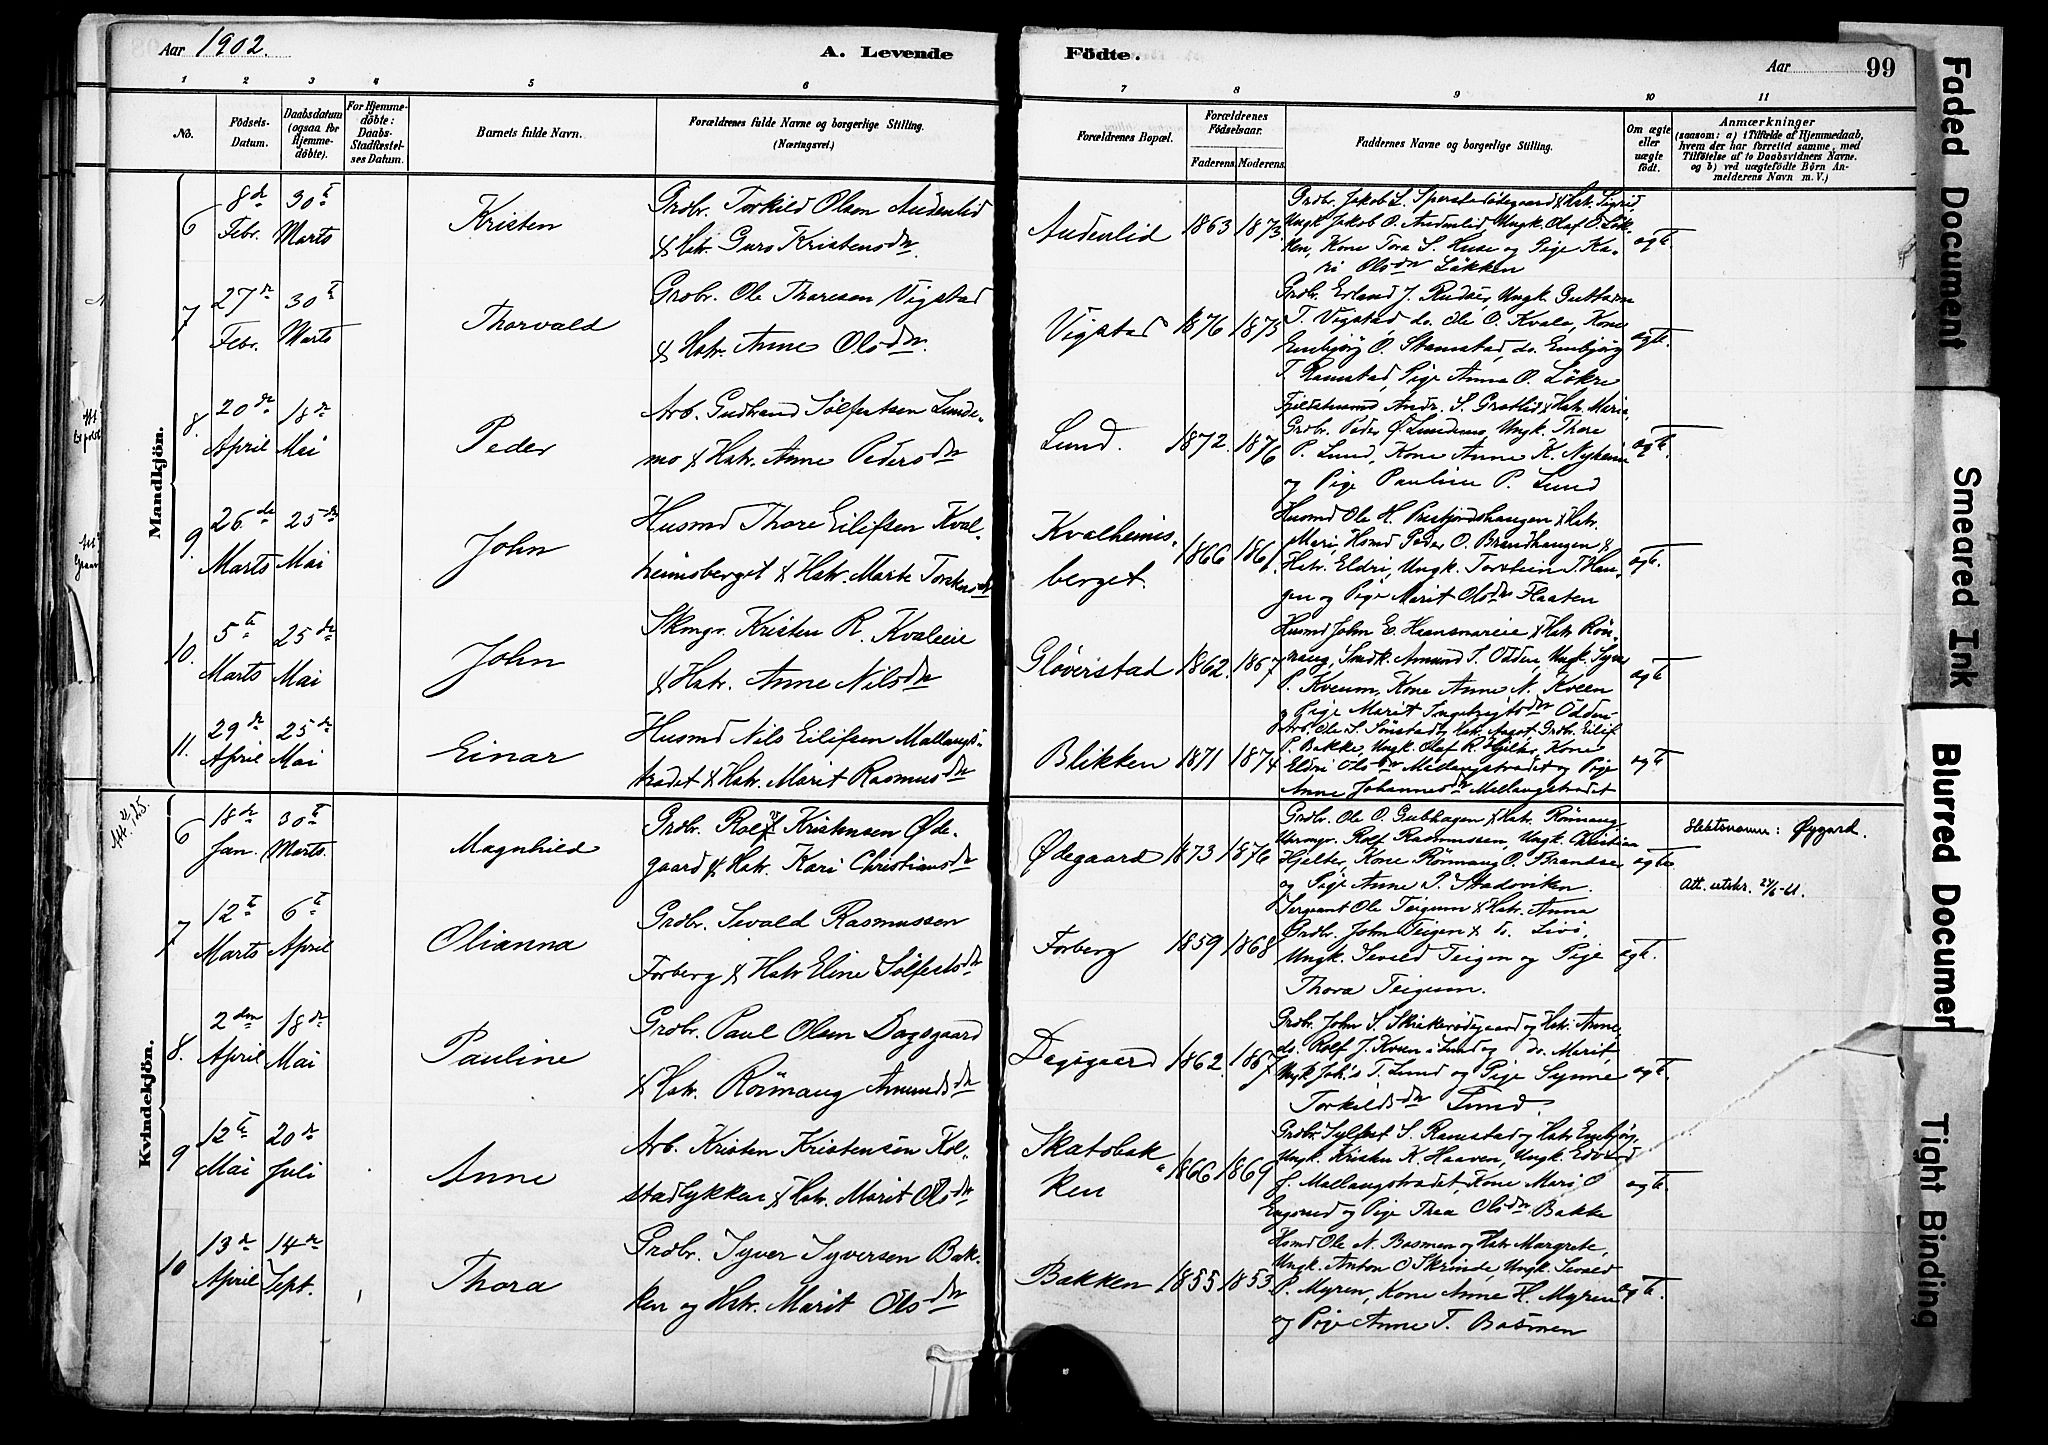 Aar 1902.
A. Levende
Födte.
Aar
99
1 2 3 4 5 6 7 8 9 10 11
No.
Födsels-
Datum.
Daabsdatum
(ogsaa for
Hjemme-
döbte).
For Hjemme-
döbte:
Daabs-
Stadfæstel-
ses Datum.
Barnets fulde Navn.
Forældrenes fulde Navne og borgerlige Stilling.
(Næringsvei.)
Forældrenes Bopæl.
Forældrenes
Födselsaar.
Faderens. Moderens.
Faddernes Navne og borgerlige Stilling.
Om ægte
eller
uægte
födt.
Anmærkninger
(saasom: a) i Tilfælde af Hjemmedaab,
hvem der har forrettet samme, med
Tilföielse af to Daabsvidners Navne.
og b) ved uægtefödte Börn An-
melderens Navn m. V.)
Mandkjön.
6 8de Febr. 30te Marts Kristen
Grdbr. Torkild Olsen Audenlid
& Hstr. Guro Kristensdtr.
Audenlid 1863 1873
Grdbr. Jakob L. & Hstr. Sigrid
Ungk. Jakob O. Audenlid, Ungk. Olaf O. Løk-
ken, Kone Tora S. Huse og Pige Ka-
ri Olsdtr Løkken
ægte.
7 27de Febr. 30te Marts Thorvald
Grdbr. Ole Thoresen Vigstad
& Hstr. Anne Olsdtr.
Vigstad 1876 1875
Grdbr. Erland J. Rudse, Ungk. Guttorm
T. Vigstad do. Ole O. Kvale, Kone
Embjørg O. Stamstad, do. Embjørg
T. Ramstad, Pige Anna O. Løkre
ægte.
8. 20de April 18de Mai Peder
Arb. Gudbrand Sølfestsen Lunde-
mo & Hstr. Anne Pedersdtr
Lund. 1872. 1876
Fjeldstuemd Andr. S. Grotlid & Hstr. Marie,
Grdbr. Peder Ø. Lundemo, Ungk. Thore
P. Lund, Kone Anne K. Nyheim
og Pige Pauline P. Lund
ægte.
9. 26de Marts 25de Mai John
Husmd Thore Eilifsen Kval-
heimsberget & Hstr. Marte Torstensdtr
Kvalheims-
berget. 1866 1861
Husmd Ole H. Prestjordshaugen & Hstr.
Mari, Hsmd Peder O. Brandhaugen &
Hstr. Eldri, Ungk. Torstein T. Hau-
gen og Pige Marit Olsdtr Flaaten
ægte.
10. 5te Marts 25de Mai John
Skmgr. Kristen R. Kvaleeie
& Hstr. Anne Nilsdtr
Gløverstad 1862. 1867
Husmd John E. & Hstr Røn-
naug, Smdk. Amund T. Odden, Ungk. Syver
P. Kveum, Kone Anne N. Kveen
og Pige Marit Ingebrigtsdtr Odden
ægte
11. 29de April 25de Mai Einar
Husmd Nils Eilifsen Mallangs-
trædet & Hstr. Marit Rasmusdtr
Blikken 1871 1874
Arb. Ole S. Sønstad og Hstr. Aagot, Grdbr. Eilif
P. Bakke, Ungk. Olaf R. Hjelter, Kone
Eldri Olsdtr Mallangstrædet og Pige
Anne Johannesdtr Mallangstrædet
ægte
Kvindekjön.
6 18de Jan. 30te Marts. Magnhild
Grdbr. Rolf Kristensen Øde-
gaard & Hstr. Kari Christiansdtr
Ødegaard 1873 1876
Grdbr. Ole O. Gubhagen, & Hstr. Rønnaug
Urmgr. Rolf Rasmussen, Ungk. Christian
Hjelter, Kone Rønnaug O. Strandse,
og Pige Anne P. Stadeviken.
ægte
Slektsnavn: Øygard.
Att. utskr. 24/6-21.
7 12te Marts 6te April Olianna
Grdbr. Sevald Rasmussen
Forberg & Hstr Eline Sølfestsdtr
Forberg 1859 1868
Sergeant Ole Teigum & Hstr. Anna
Grdbr. John Teigen & do. Livi,
Ungk. Sevald Teigen og Pige
Thora Teigum.
ægte.
8. 2den April 18de Mai Pauline
Grdbr. Paul Olsen Dagsgaard
& Hstr. Rønnaug Amundsdtr
Dagsgaard 1862. 1867
Grdbr. John S. Skrikersødegaard og Hstr. Anne,
do. Rolf J. Kveen i Lund og do. Marit
Ungk Joh's T. Lund og Pige Synne
Torkildsdtr Lund.
ægte.
9 12te Mai 20de Juli Anne
Arb. Kristen Kristensøn Kol-
stadløkken & Hstr. Marit Olsdtr
Skatobak-
ken 1866 1869
Grdbr. Sylfest S. Ramstad og Hstr Embjørg,
Ungk. Kristen K. Haaven, Ungk. Edvard
J. Mallangstrædet, Kone Mari O
og Pige Thea Olsdtr Bakke
ægte.
10 13de April 14de Sept. Thora
Grdbr. Syver Syversen Bak-
ken og Hstr. Marit Olsdtr
Bakken 1855 1853
Hsmd Ole N. Basmoen og Hstr Margrete,
Ungk. Anton O Skrinde, Ungk. Sevald
P. Myren, Kone Anne H. Myren
og Pige Anne T. Basmoen
ægte.
Faded Document
Smeared Ink
Blurred Documen
Tight Binding